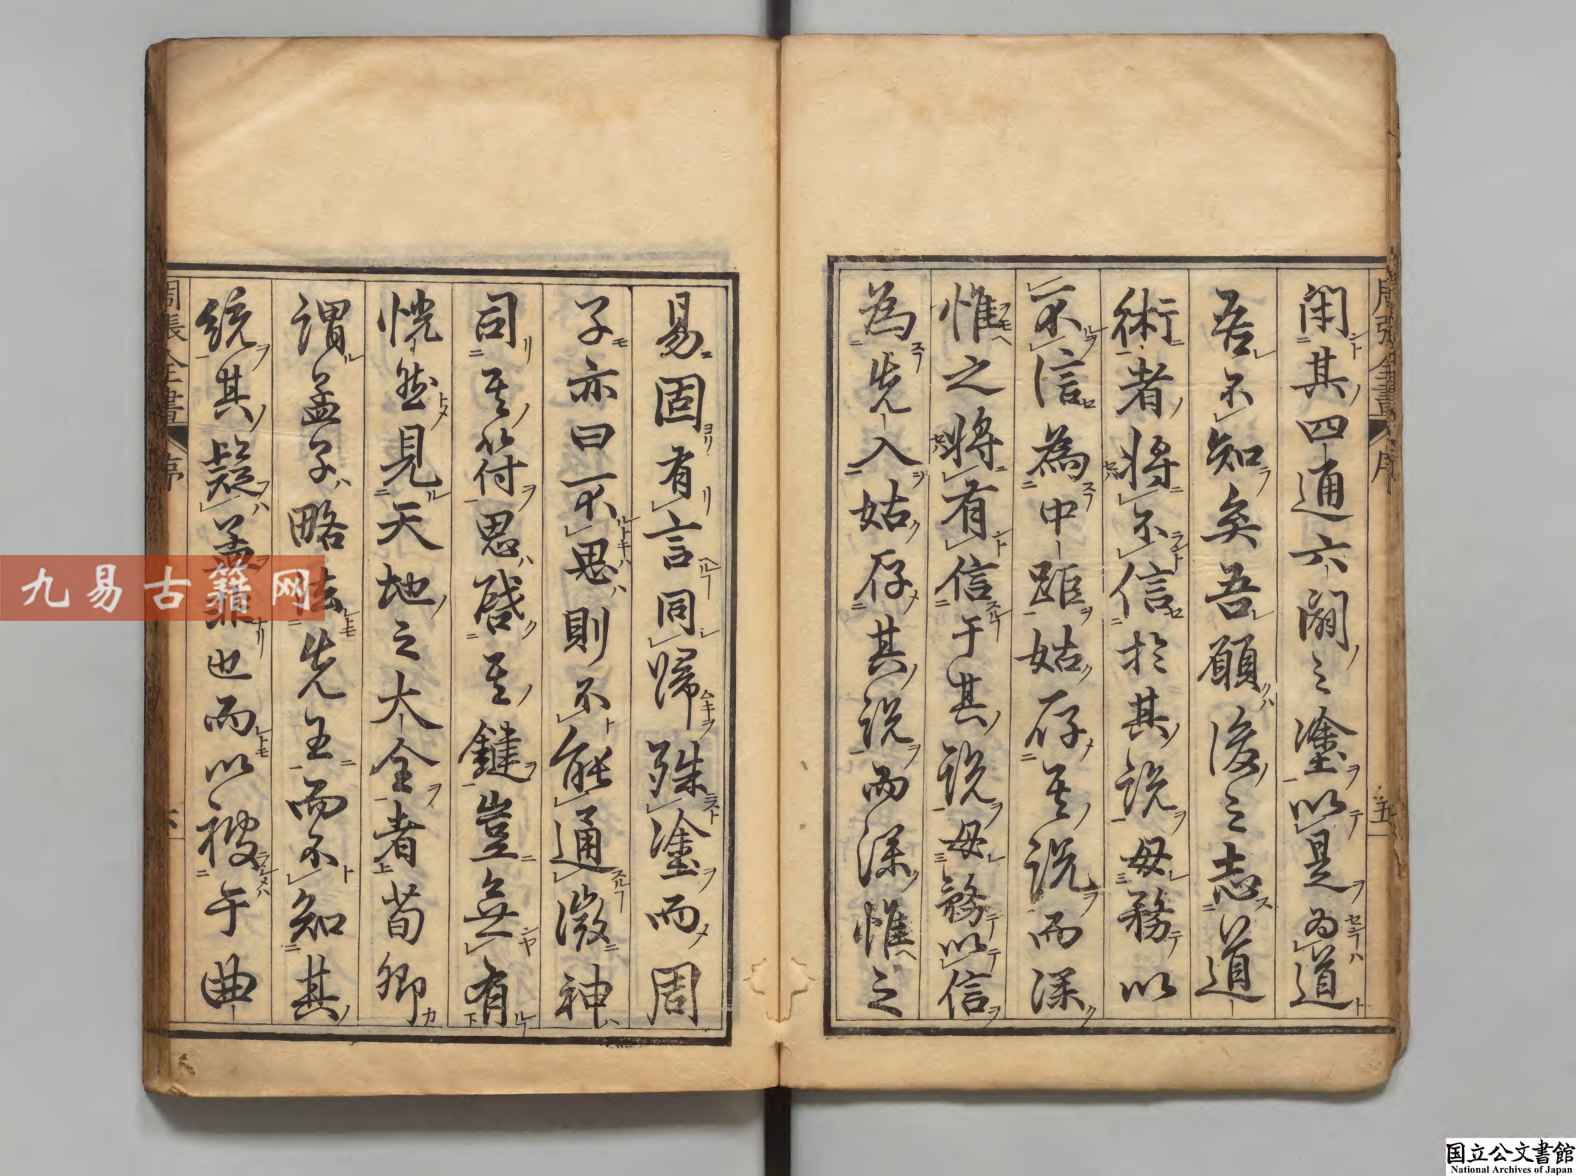 周張全書 序 五
閑其四通六闢之塗以是為道
吾不知矣吾願後之志道
術者將不信於其説毋務以
不信為中距姑存其説而深
惟之將有信于其説毋務以信
為先入姑存其説而深惟之
易固有言同歸殊塗而周
子亦曰不思則不能通微神
司其符思啓其鍵豈無有
恍然見天地之大全者荀卿
謂孟子略法先王而不知其
統其疑孟罪也而以被于曲
周張全書 序 六
九易古籍网
国立公文書館
National Archives of Japan